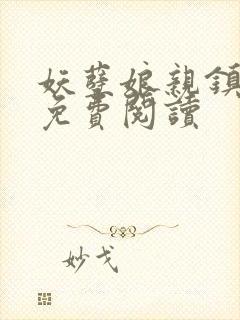 妖孽娘親鎮
免費閱讀
妙戈